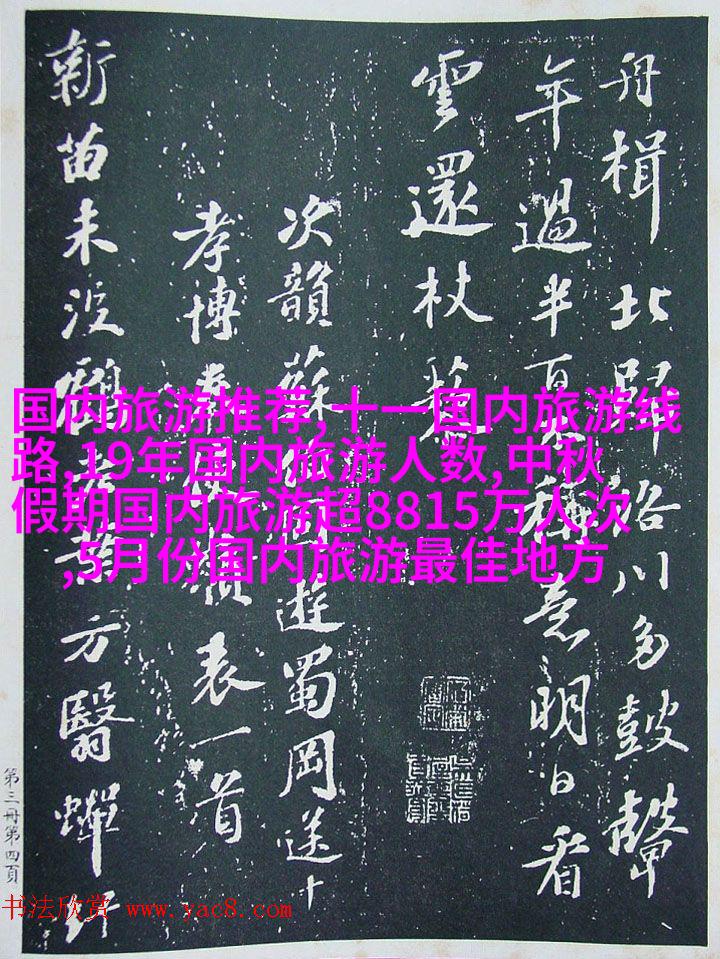 舟楫北歸洛川多鼓聲
年過半百稱意明日看
雲還杖藜
次韻蘇伯固遊蜀岡送
孝博奉使嶺表一首
新苗未没鶴老葉方翳蟬
第三册第四頁
国内旅游推荐,十一国内旅游线
路,19年国内旅游人数,中秋
假期国内旅游超8815万人次
,5月份国内旅游最佳地方
书法欣赏 www.yac8.com